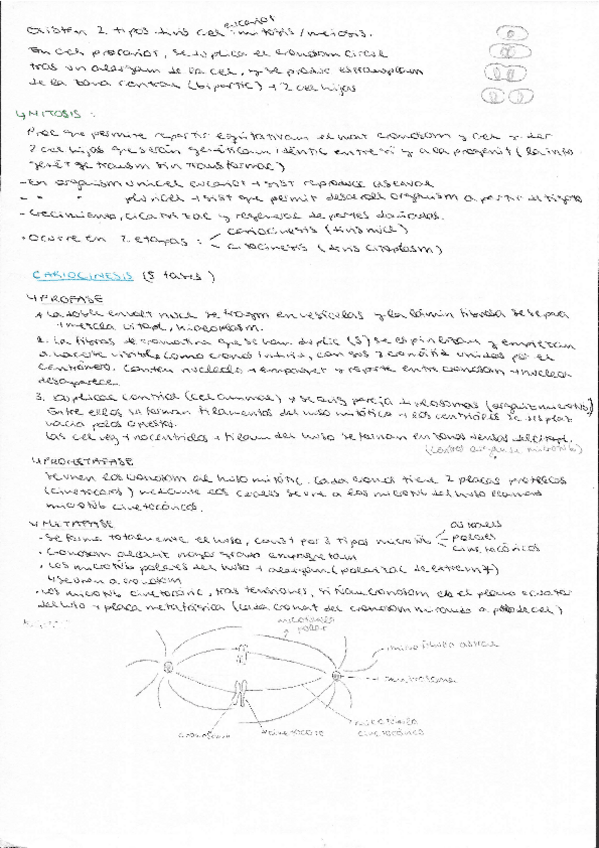 existen 2 tipos divis cel eucariot mitosis/meiosis.
En cel procariot, se duplica el cromosom circul
tras un alargam de la cel, y se produc estrangulam
de la zona central (bipartic) → 2 cel hijas
↳ MITOSIS:
Proc que permite repartir equitativam el mat cromosom y cel y dar
2 cel hijas que serán genéticam idéntic entre sí y a la progenit (la info
genét se transm sin transformac)
- En organism unicel eucariot → sist reproduc asexual
- " " pluricel → sist que permit desarroll organism a partir del zigoto
- Crecimiento, cicatrizac y regenerac de partes dañadas.
· Ocurre en 2 etapas:
cariocinesis (divis nucl)
citocinesis (divis citoplasm)
CARIOCINESIS (5 fases)
↳ PROFASE
La doble envolt nucl se fragm en vesículas y la lámin fibrosa se separa
mezcla citopl, nucleoplasm.
2. La fibras de cromatina que se han duplic (S) se espiralizan y empiezan
a hacerse visibles como cromos individ, con sus 2 cromátid unidas por el
centrómero.
desaparece.
3. Duplicac centriol (cel animal)
Entre ellos se forman filamentos del huso mitótico → los centriol se desplaz
hacia polos opuestos.
Las cel veg → no centriolos → filam del huso se forman en zonas densas del citopl.
(centro organizad microtúb)
↳ PROMETAFASE
Se unen los cromosom al huso mitótic. Cada cromos tiene 2 placas proteicas
(cinetocoro) mediante las cuales se une a los microtúb del huso llamados
microtúb cinetocóricos.
↳ METAFASE
- Se forma totalmente el huso, const por 3 tipos microtúb
astrales
polares
cinetocóricos
· Cromosom alcanz mayor grado empaquetam
· Los microtúb polares del huso → alargam (polaridad de extrem ≠)
↳ se unen a cromosom
· Los microtúb cinetocóric, tras tensiones, sitúan cromosom en el plano ecuator
del huso → placa metafásica (cada cromat del cromosom mirando a polo de cel)
microtúbulo
polar
microtúbulo astral
centrosoma
microtúbulo
cinetocórico
cinetocoro
cromosoma